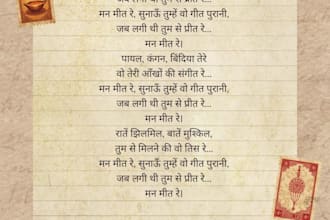 जब लगी थी तुम से प्रीत रे...
मन मीत रे, सुनाऊँ तुम्हें वो गीत पुरानी,
जब लगी थी तुम से प्रीत रे...
मन मीत रे।
पायल, कंगन, बिंदिया तेरे
वो तेरी आँखों की संगीत रे...
मन मीत रे, सुनाऊँ तुम्हें वो गीत पुरानी,
जब लगी थी तुम से प्रीत रे...
मन मीत रे।
रातें झिलमिल, बातें मुश्किल,
तुम से मिलने की वो तिस रे...
मन मीत रे, सुनाऊँ तुम्हें वो गीत पुरानी,
जब लगी थी तुम से प्रीत रे...
मन मीत रे।